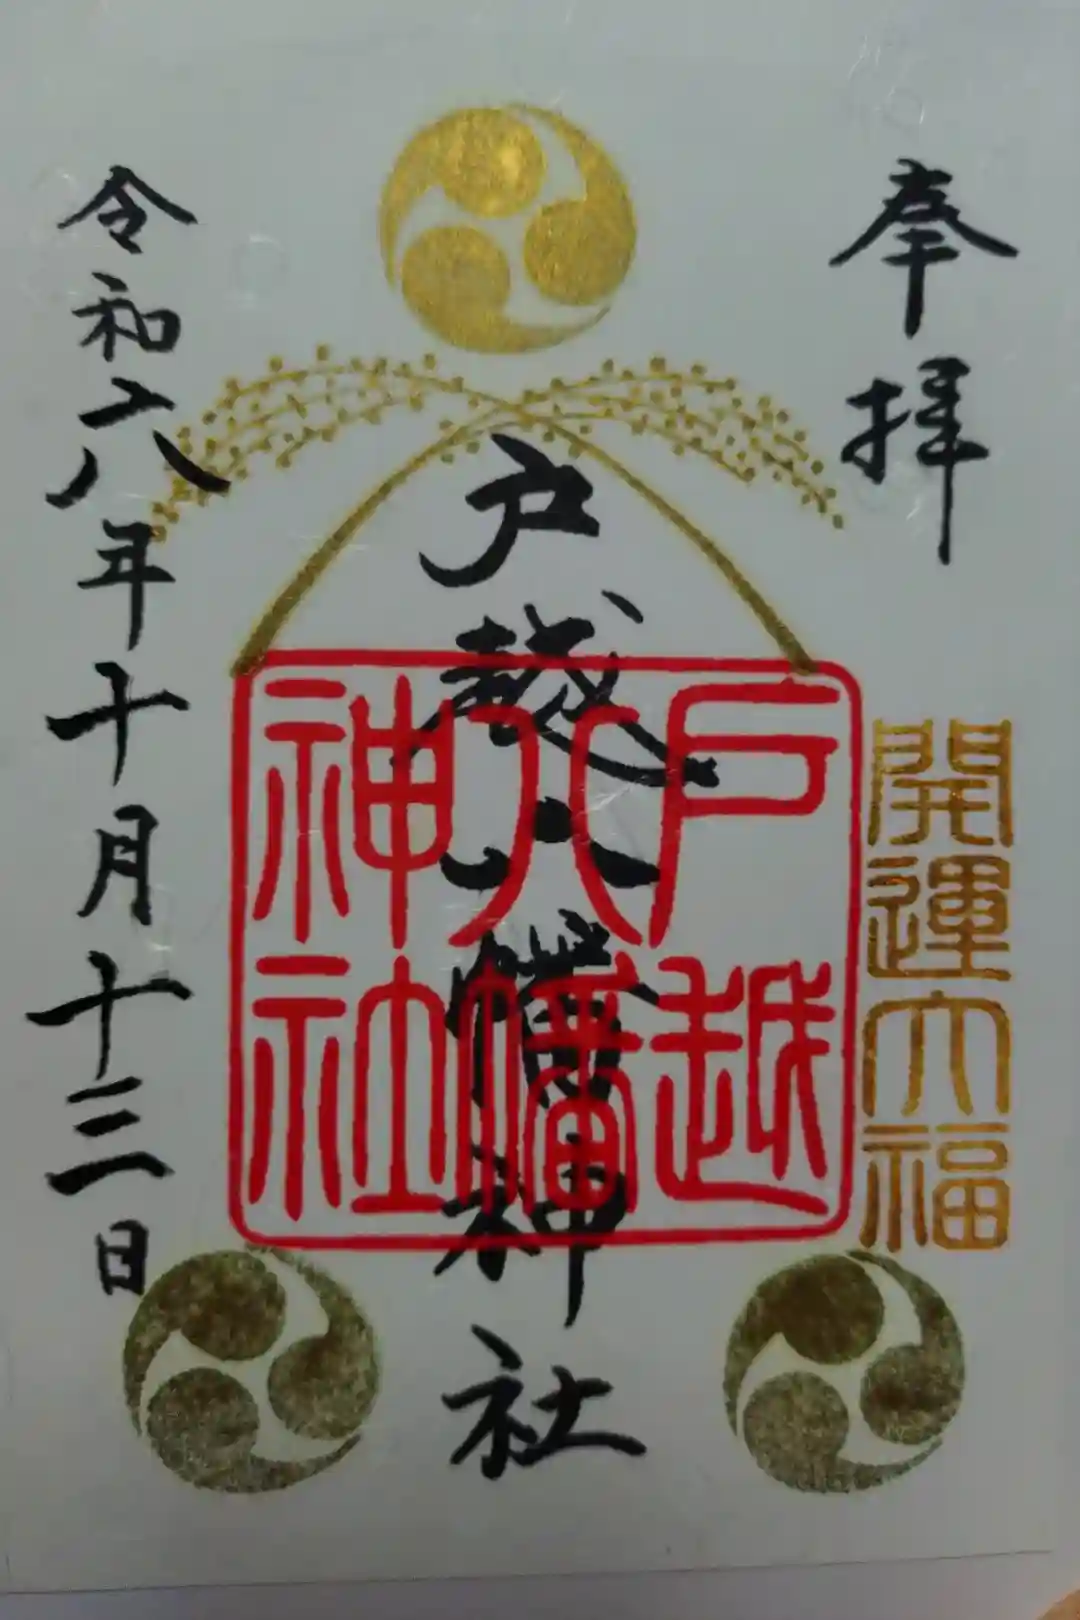 奉拝
開運大福
戸越八幡神社
戸越
八幡
神社
令和六年十月十三日